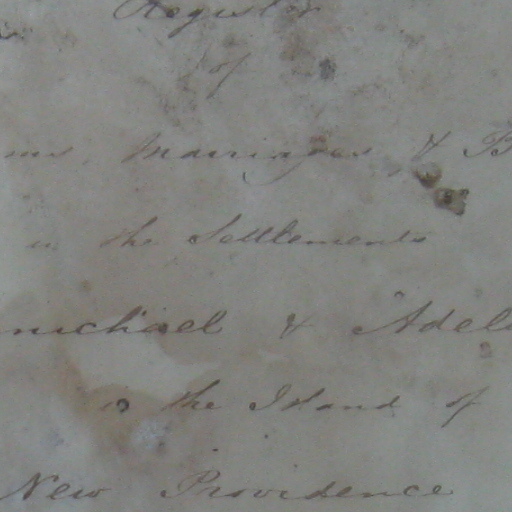 Register
of
ms, Marriages, & B
in the Settlements
michael & Adel
in the Island of
New Providence